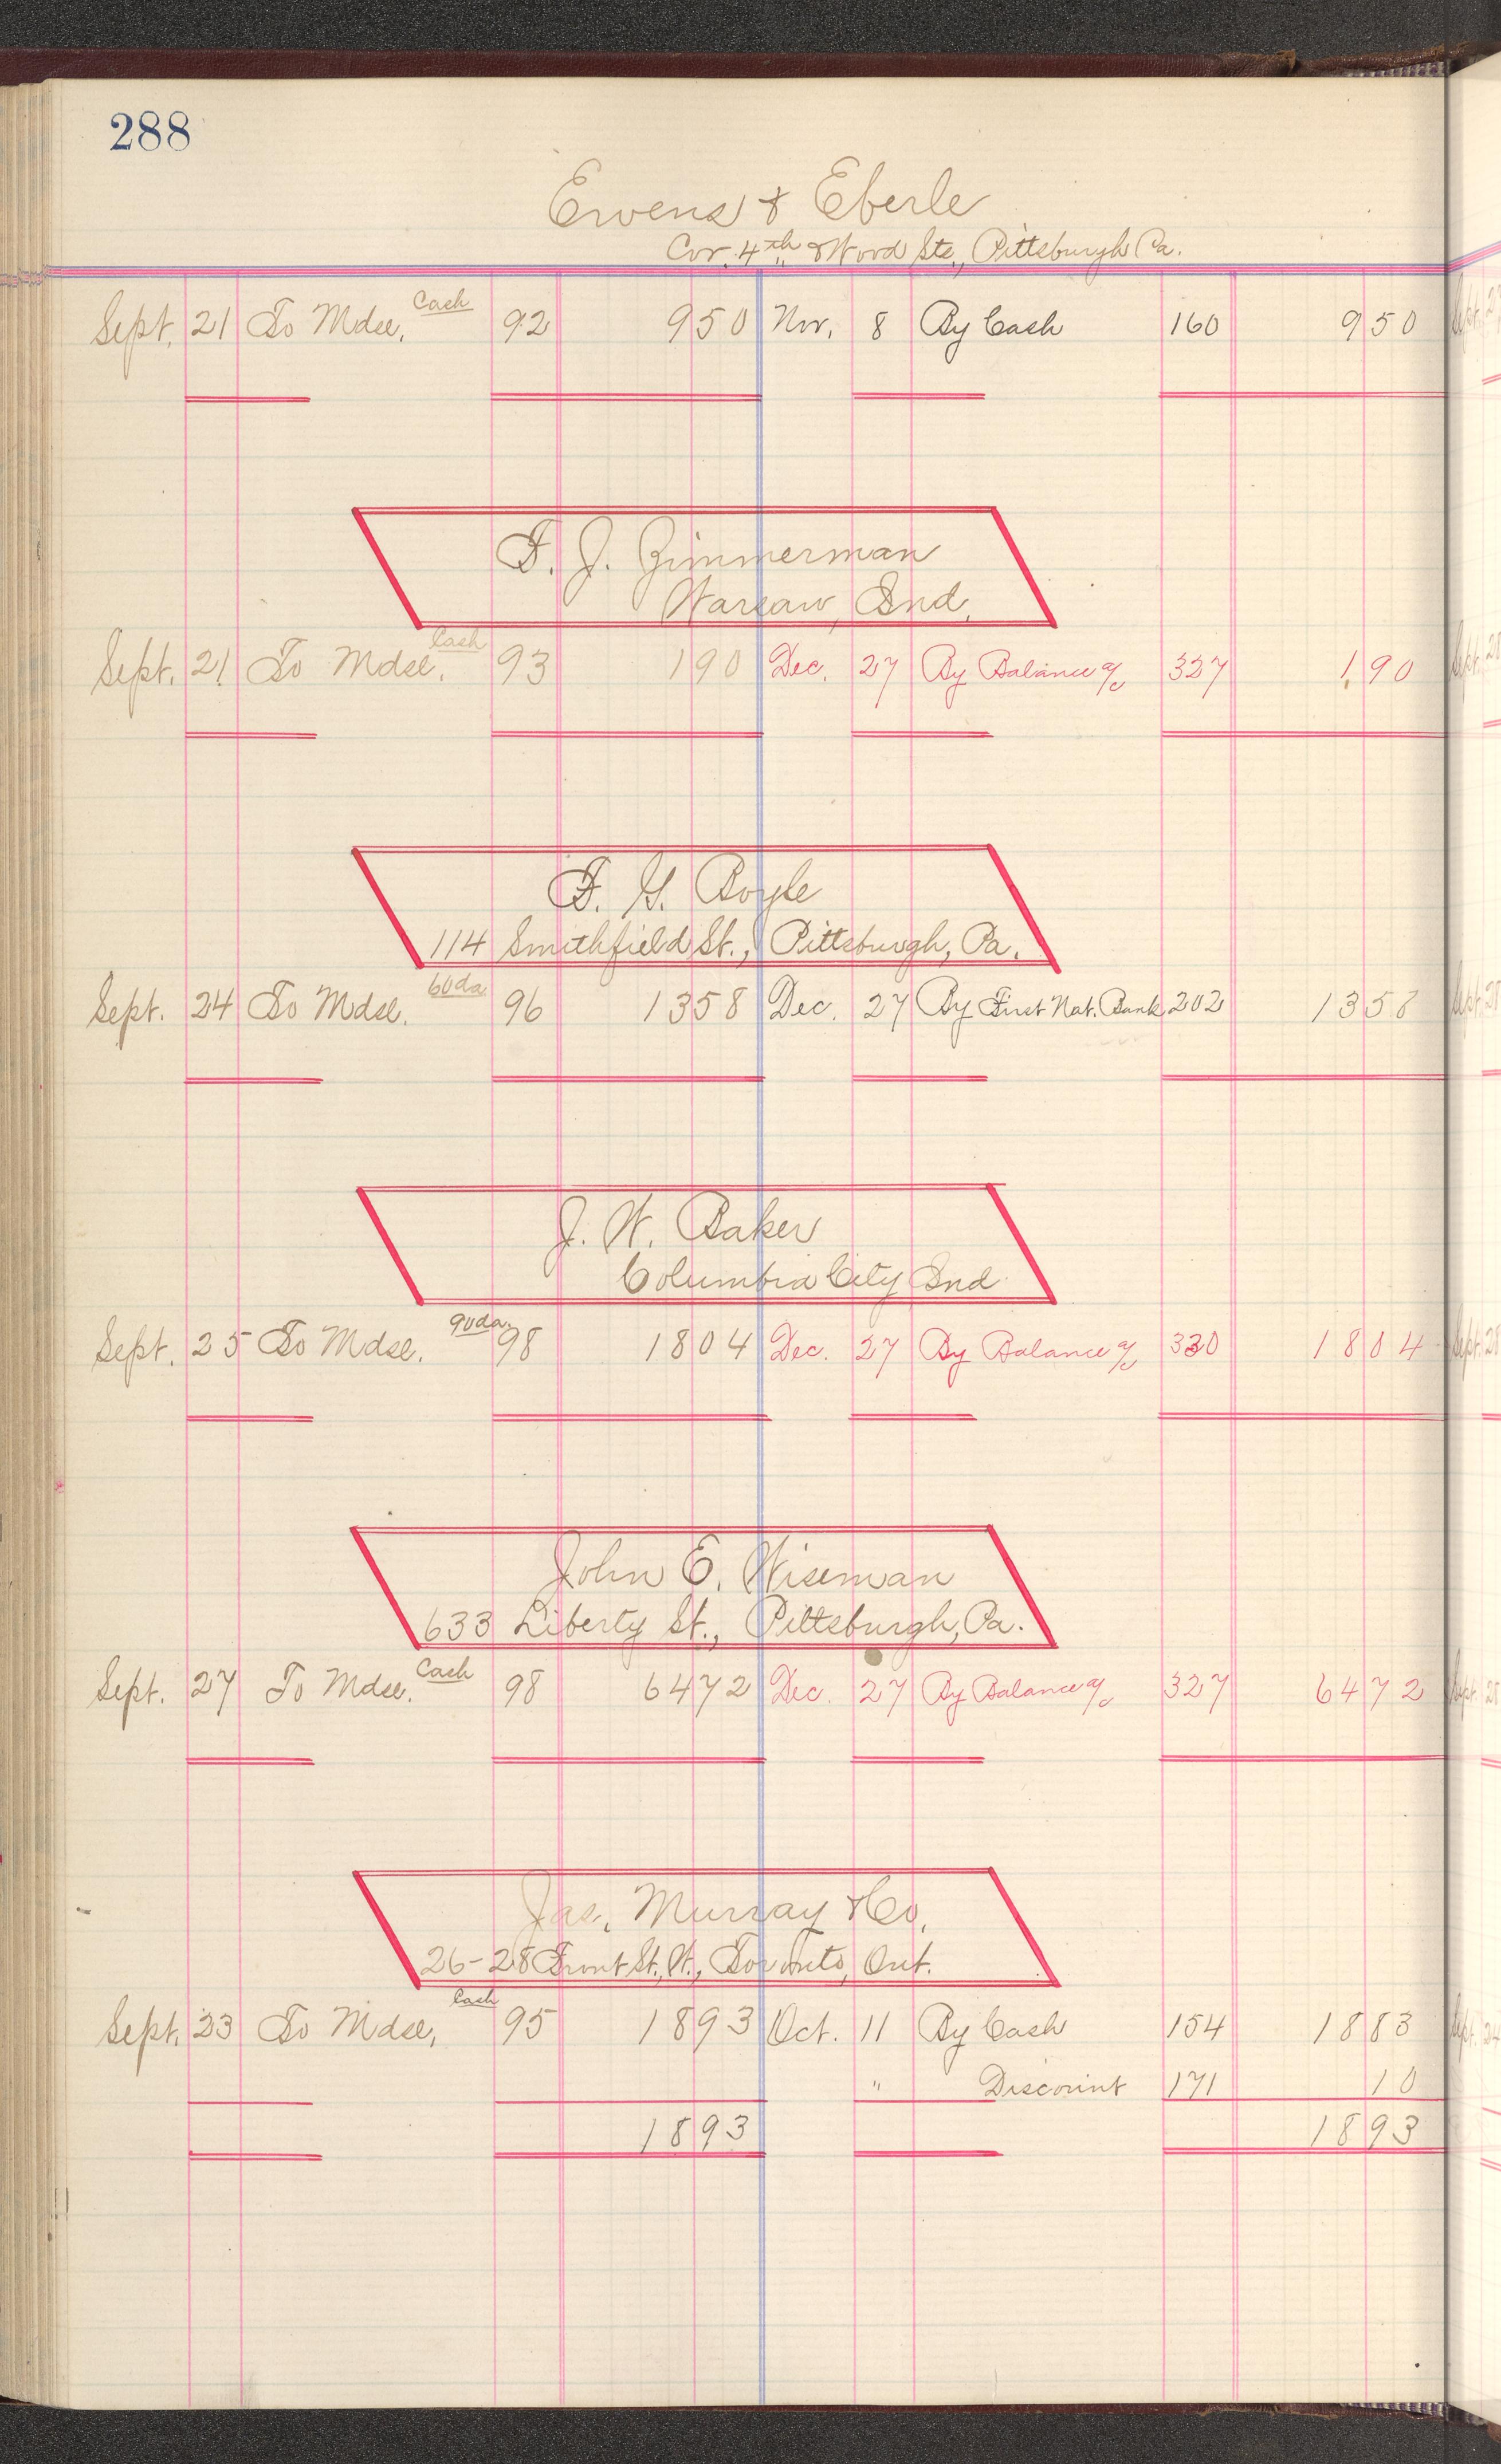 288
Ewens & Eberle
Cor. 4th & Wood Sts., Pittsburgh Pa.
Sept. 21 To Mdse. Cash 92 950 Nov. 8 By Cash 160 950
F. J. Zimmerman
Warsaw, Ind.
Sept. 21 To Mdse. Cash 93 190 Dec. 27 By Balance a/c 327 190
F. G. Boyle
114 Smithfield St., Pittsburgh, Pa.
Sept. 24 To Mdse. 60 da 96 1358 Dec. 27 By First Nat. Bank 202 1358
J. W. Baker
Columbia City Ind
Sept. 25 To Mdse. 90 da. 98 1804 Dec. 27 By Balance a/c 330 1804
John E. Wiseman
633 Liberty St., Pittsburgh, Pa.
Sept. 27 To Mdse. Cash 98 6472 Dec. 27 By Balance a/c 327 6472
Jas. Murray & Co.
26-28 Front St. W., Toronto, Ont.
Sept. 23 To Mdse. Cash 95 1893 Oct. 11 By Cash 154 1883
" Discount 171 10
1893 1893